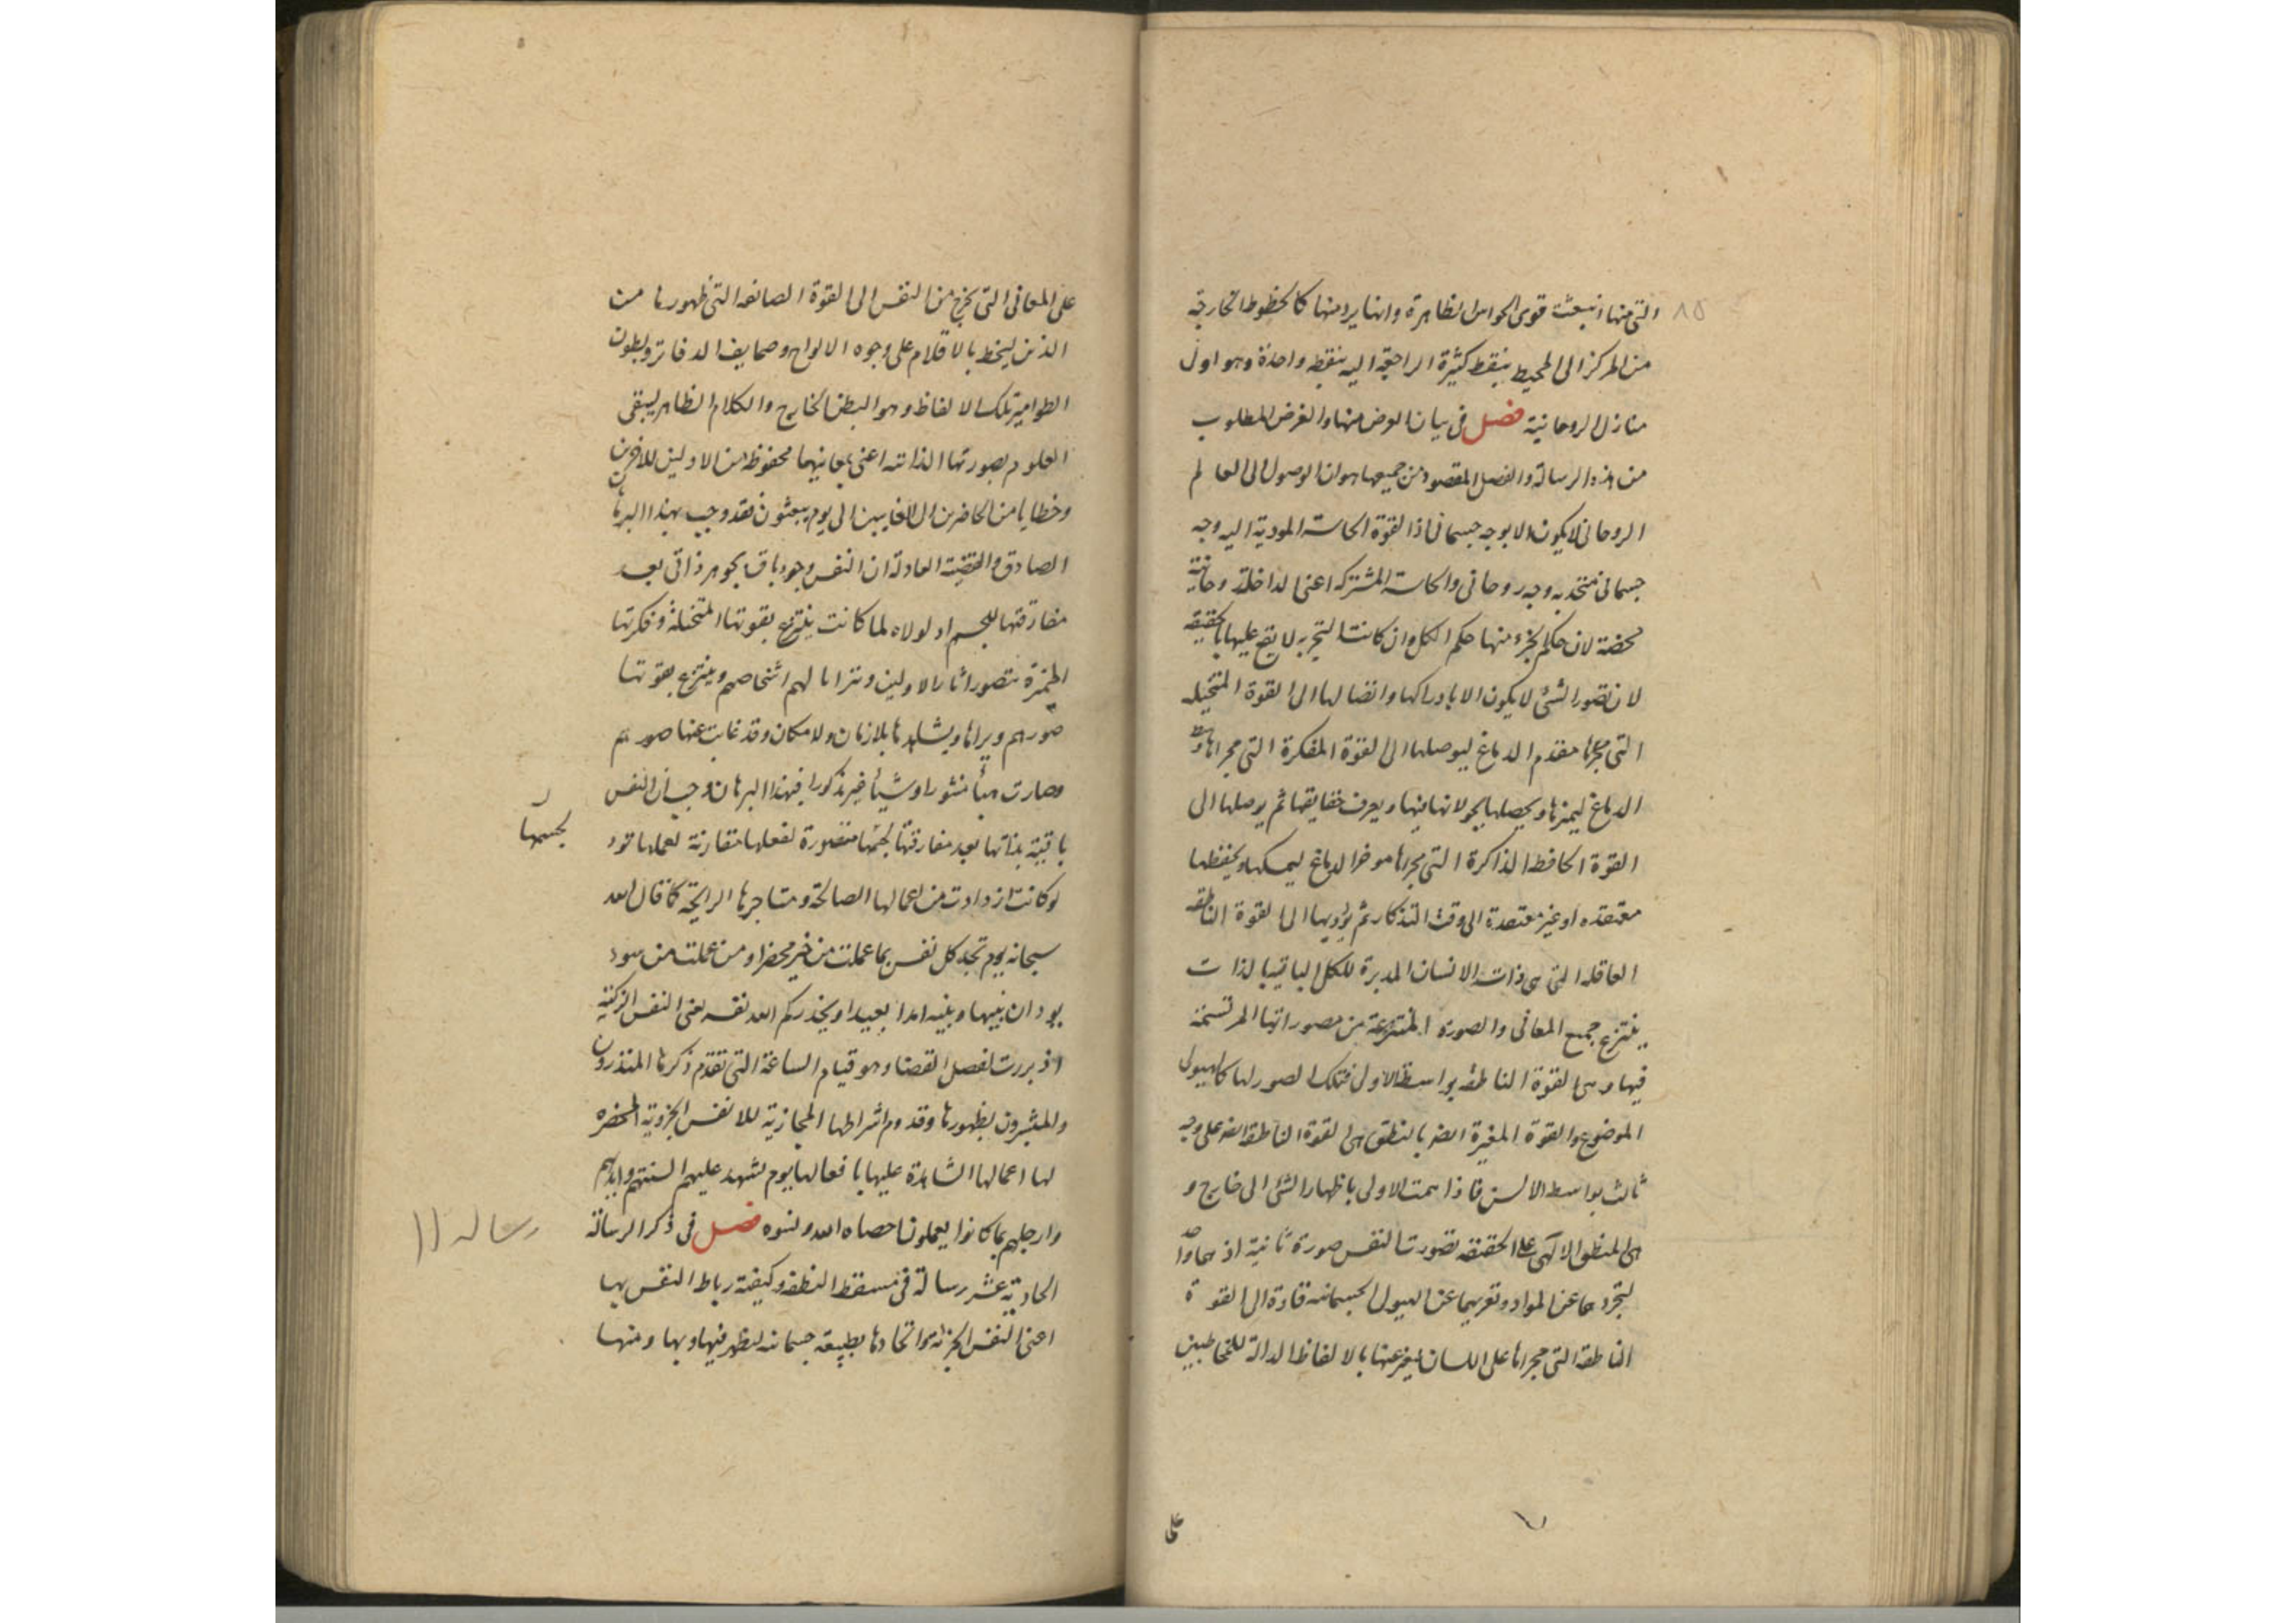 التى منها انبعثت قوى الحواس الظاهرة وانها يرد منها كالخطوط الخارجة
٨٥
من المركز الى المحيط بنقط كثيرة الراجعة اليه بنقطة واحدة وهو اول
منازل الروحانية فصل فى بيان الغرض منها والغرض المطلوب
من هذه الرسالة والفصل المقصود من جميعها هو ان الوصول الى العالم
الروحانى لا يكون الا بوجه جسمانى اذ القوة الحاسة المودية اليه وجه
جسمانى متحد به وجه روحانى والحاسة المشتركة اعنى الداخلة روحانية
محضة لان حكم الجزء منها حكم الكل وان كانت التجربه لا يقع عليها بالحقيقة
لان تصور الشئ لا يكون الا بادراكها واتصالها الى القوة المتخيله
التى مجراها مقدم الدماغ ليوصلها الى القوة المفكرة التى مجراها وسط
الدماغ ليميزها ويحصلها بجولانها فيها ويعرف حقايقها ثم يوصلها الى
القوة الحافظة الذاكرة التى مجراها موخر الدماغ ليمسكها ويحفظها
معتقده او غير معتقدة الى وقت التذكار ثم يؤديها الى القوة الناطقة
العاقلة التى هى ذات الانسان المدبرة للكل الباقية بالذات
ينتزع جميع المعانى والصورة المنتزعة من مصوراتها المرتسمة
فيها وهى القوة الناطقة بواسطة الاولى فتلك الصور لها كالهيولى
الموضوع والقوة المغيرة ايضا بالنطق هى القوة الناطقة ايضا على وجه
ثالث بواسطة الالسن فاذا همت الاولى باظهار الشئ الى خارج و
هى المنطق الالهى على الحقيقة تصورت النفس صورة ثانية اذ هما واحد
لتجردهما عن المواد وتعريهما عن الهيولى الجسمانية قادة الى القوة
الناطقة التى مجراها على اللسان ليعبر عنها بالالفاظ الدالة للمخاطبين
على
على المعانى التى يخرج من النفس الى القوة الصانعة التى ظهورها من
الذين ليخط بالاقلام على وجوه الالواح وصحايف الدفاتر وبطون
الطوامير تلك الالفاظ وهو البطن الخارج والكلام الظاهر ليبقى
العلوم بصورتها الذاتية اعنى بمعانيها محفوظة من الاولين للاخرين
وخطابا من الحاضرين الى الغايبين الى يوم يبعثون فقد وجب بهذا البرهان
الصادق والقضية العادلة ان النفس وجود باق بجوهر ذاتى بعد
مفارقتها للجسم اذ لولاه لما كانت ينتزع بقوتها المتخيلة وفكرتها
المميزة بتصور اثار الاولين وتترايا لهم اشخاصهم وينتزع بقوتها
صورهم ويراها ويشاهدها بلا زمان ولا مكان وقد غابت عنها صورهم
وصارت هباً منثورا وشيأ غير مذكورا فبهذا البرهان وجب ان النفس
باقية بذاتها بعد مفارقتها لجسمها متصورة لفعلها مقارنة لعملها تود
لجسمها
لو كانت ازدادت من اعمالها الصالحة ومتاجرها الرابحة كما قال الله
سبحانه يوم تجد كل نفس بما عملت من خير محضرا ومن عملت من سوء
يود ان بينها وبينه امدا بعيدا ويحذركم الله نفسه يعنى النفس الزكية
اذ بررت لفصل القضا وهو قيام الساعة التى تقدم ذكرها المنذرون
والمبشرون بظهورها وقدوم اشراطها المجازية للانفس الجزوية المحضره
لها اعمالها الشاهدة عليها بافعالها يوم تشهد عليهم السنتهم وايديهم
وارجلهم بما كانوا يعملون احصاه الله ونسوه فصل فى ذكر الرسالة
رساله ١١
الحادية عشر رسالة فى مسقط النطفة وكيفية رباط النفس بها
اعنى النفس الجزئية واتحادها بطبيعة جسمانية لتظهر فيها وبها ومنها